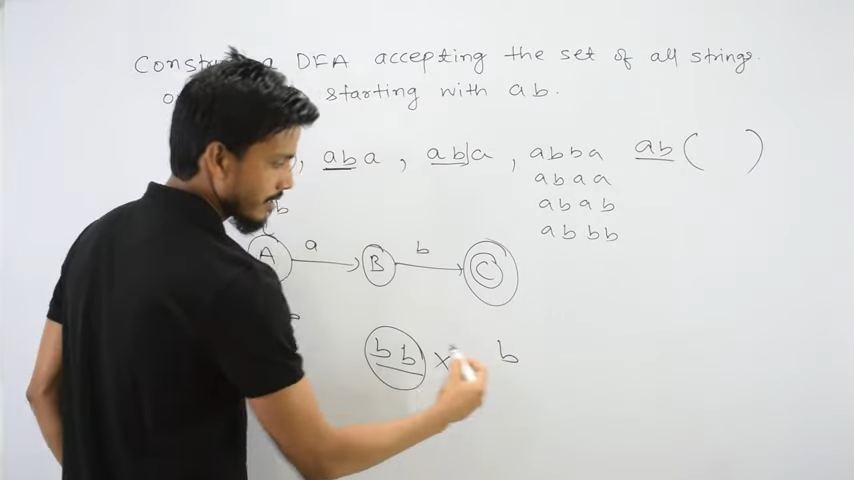 DFA accepting the set of all strings.
starting with ab.
, aba , ab|a , abba ab( )
abaa
abab
abbb
b
A a B b C
bb x b